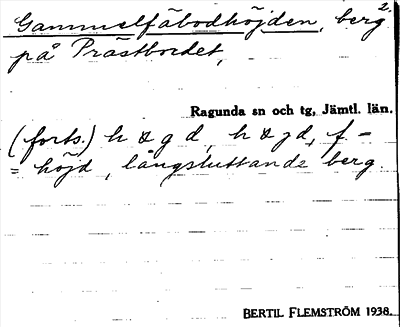 2.
Gammelfäbodhöjden, berg
på Prästbordet,
Ragunda sn och tg, Jämtl. län.
(forts.) h & g d, h & j d, f =
= höjd, långsluttande berg.
BERTIL FLEMSTRÖM 1938.